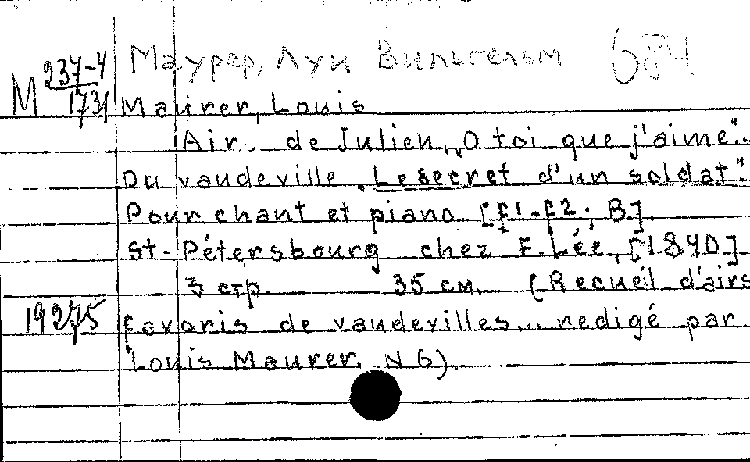 Маурер, Луи Вильгельм 684
М 237-4
1731
Maurer, Louis
Air de Julien „O toi que j'aime".
Du vaudeville „Le secret d'un soldat".
Pour chant et piano [E1-E2; B].
St-Pétersbourg chez F. Lée, [1840]
3 стр. 35 см. (Recueil d'airs
19275 favoris de vaudevilles... redigé par
Louis Maurer. N 6).